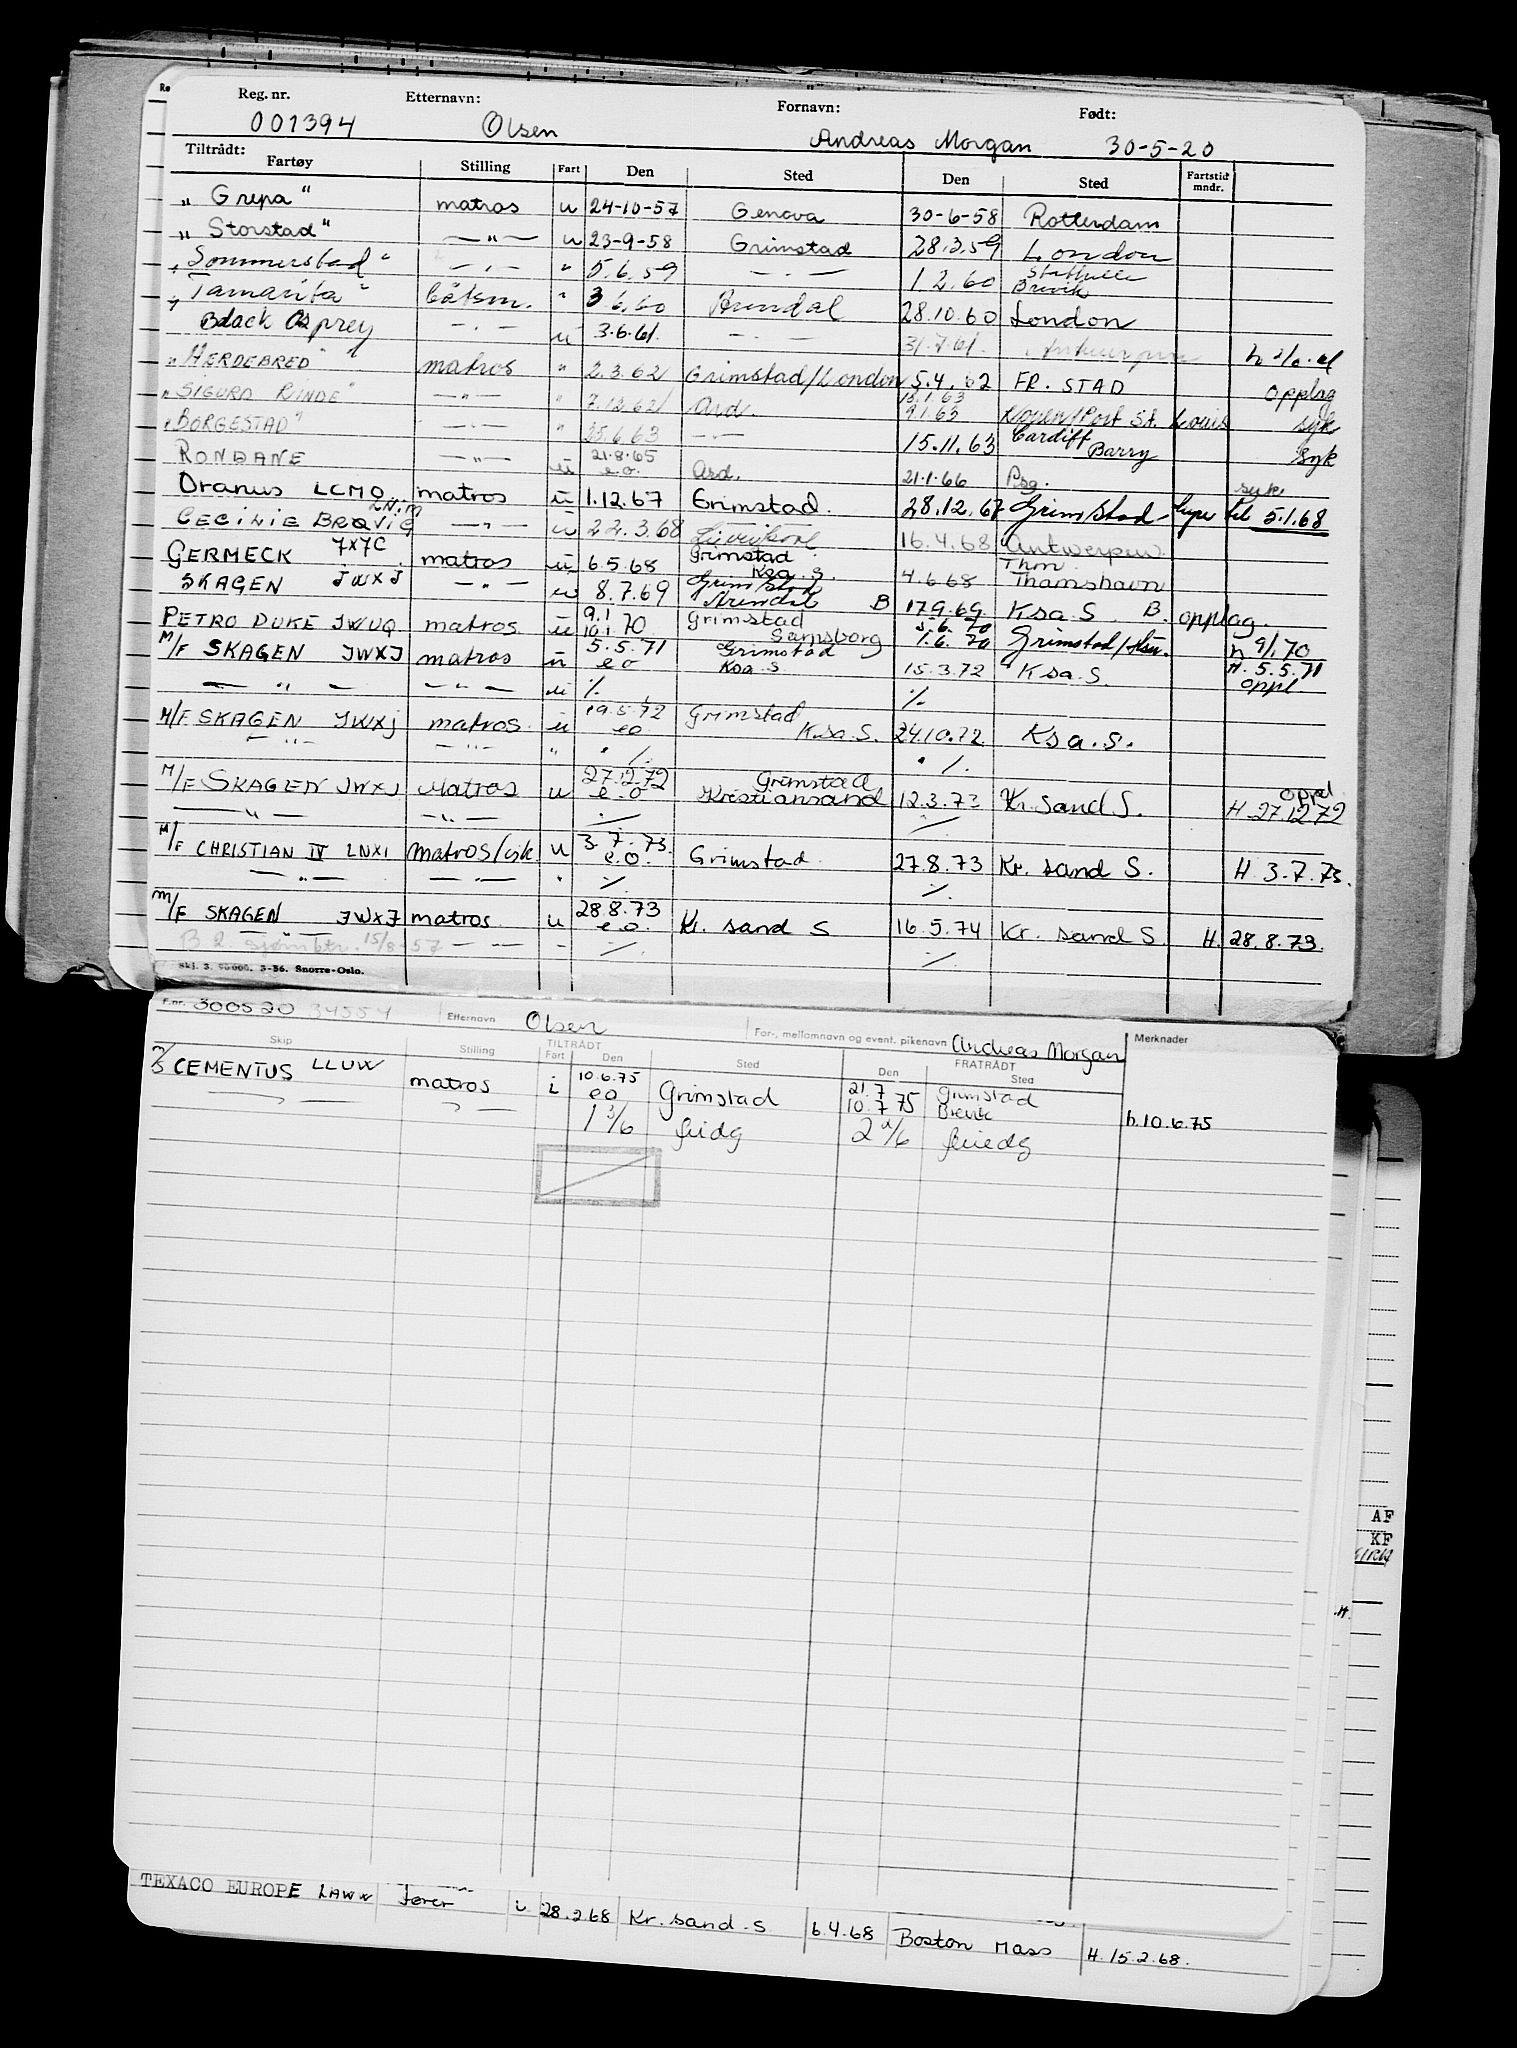 Reg. nr. Etternavn: Fornavn: Født:
001394 Olsen Andreas Morgan 30-5-20
Tiltrådt:
Fartøy Stilling Fart Den Sted Den Sted Fartstid mndr.
„ Grepa " matros u 24-10-57 Genova 30-6-58 Rotterdam
„ Storstad " —"— u 23-9-58 Grimstad 28.3.59 London
„ Sommerstad " —"— " 5.6.59 —"— 1 2.60 Stathelle Brevik
„ Tamarita " båtsm. " 3.6.60 Arendal 28.10.60 London
Black Osprey —"— u 3.6.61. —"— 31.7.61.
„ HERDEBRED " matros " 2.3.62 Grimstad/London 5.4.62 FR. STAD opplag
„ SIGURD RINDE " —"— " 7.12.62 Ard. 9.1.63 /Port St. Louis syk
„ BORGESTAD " —"— " 25.6.63 —"— 15.11.63 Cardiff Barry syk
RONDANE —"— u 21.8.65 e.o. Ard. 21.1.66 Psg. syk.
Oranus LCMO matros u 1.12.67 Grimstad. 28.12.67 Grimstad til 5.1.68
CECILIE BRØVIG LN.M —"— u 22.3.68 Liverpool 16.4.68 Antwerpen
GERMECK JXJC matros u 6.5.68 Grimstad Ksa. S. 4.6.68 Thm Thamshavn
SKAGEN JWXJ —"— u 8.7.69 Grimstad Arendal B 17.9.69. Ksa. S. B. opplag.
PETRO DUKE JWUQ matros u 9.1 10.1 70 Grimstad Sarpsborg 5.6.70 1.6.70 Grimstad/ h 9/1 70
M/F SKAGEN JWXJ matros u 5.5.71 e o Grimstad Ksa. S. 15.3.72 Ksa. S. H. 5.5.71 oppl.
—"— —"— u ./. ./.
M/F SKAGEN JWXJ matros u 19.5.72 eo Grimstad Ksa. S. 24.10.72 Ksa. S.
—"— —"— " ./. ./.
M/F SKAGEN JWXJ Matros u 27.12.72 e.o Grimstad Kristiansand 12.3.73 Kr. sand S. oppl H. 27.12.72
—"— —"— ./. ./.
M/F CHRISTIAN IV LNXI matros/ u 3.7.73. e.o. Grimstad 27.8.73 Kr. sand S. H. 3.7.73.
—"— —"— " ./. ./.
M/F SKAGEN JWXJ matros u 28.8.73 e.o. Kr. sand S 16.5.74 Kr. sand S. H. 28.8.73.
B 2. sjømbtr. 15/8-57 —"— ./. ./.
Skj. 3. 3-56. Snorre-Oslo.
F.nr. 300520 34554 Etternavn Olsen For-, mellomnavn og event. pikenavn Andreas Morgan Merknader
TILTRÅDT FRATRÅDT
Skip Stilling Fart Den Sted Den Sted
CEMENTUS LLUW matros i 10.6.75 eo Grimstad 21.7 10.7 75 Grimstad Brevik h.10.6.75
TEXACO EUROPE LAWW fører u 28.2 68 Kr. sand. S 6.4.68 Boston Mass H. 15.2.68.
AF
KF
.H.